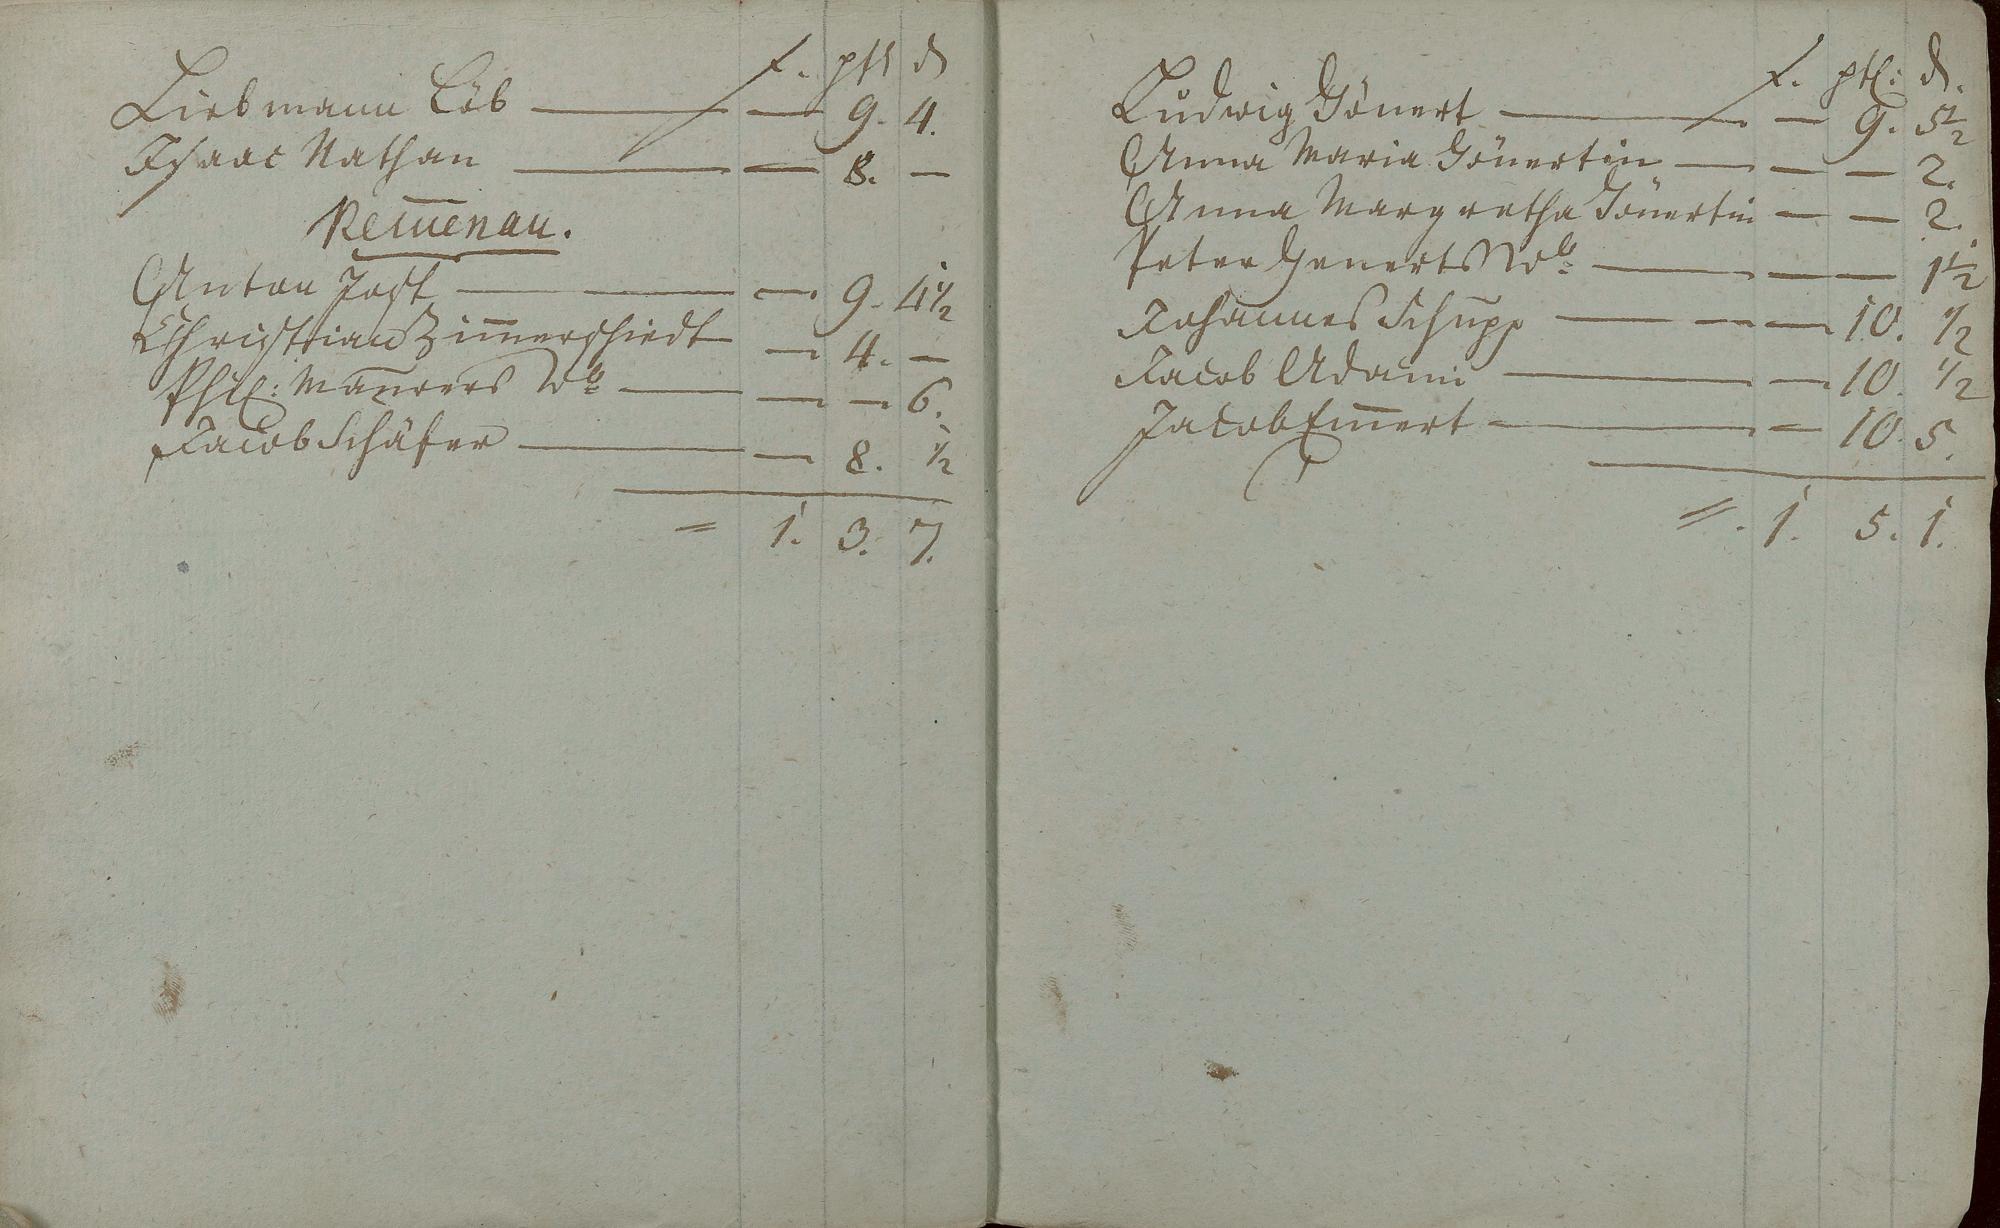 f. ptl d
Liebmann Löb — — 9. 4.
Isaac Nathan — — 8. —
Kem̅enau.
Anton Jost — — 9. 4 1/2
Christian Zim̅erschiedt — 4. —
Phil: Maurers Wb — — — 6.
Jacob Schäfer — — 8. 1/2
= 1. 3. 7.
f. ptl: d.
Ludwig Gönert — — 9. 5 1/2
Anna Maria Gönertin — — — 2.
Anna Margretha Gönertin — — 2.
Peter Henerts Wb: — — — 1 1/2
Johannes Schupp — — — 10. 1/2
Jacob Adami — — 10. 1/2
Jacob Em̅ert — — 10. 5.
=. 1. 5. 1.